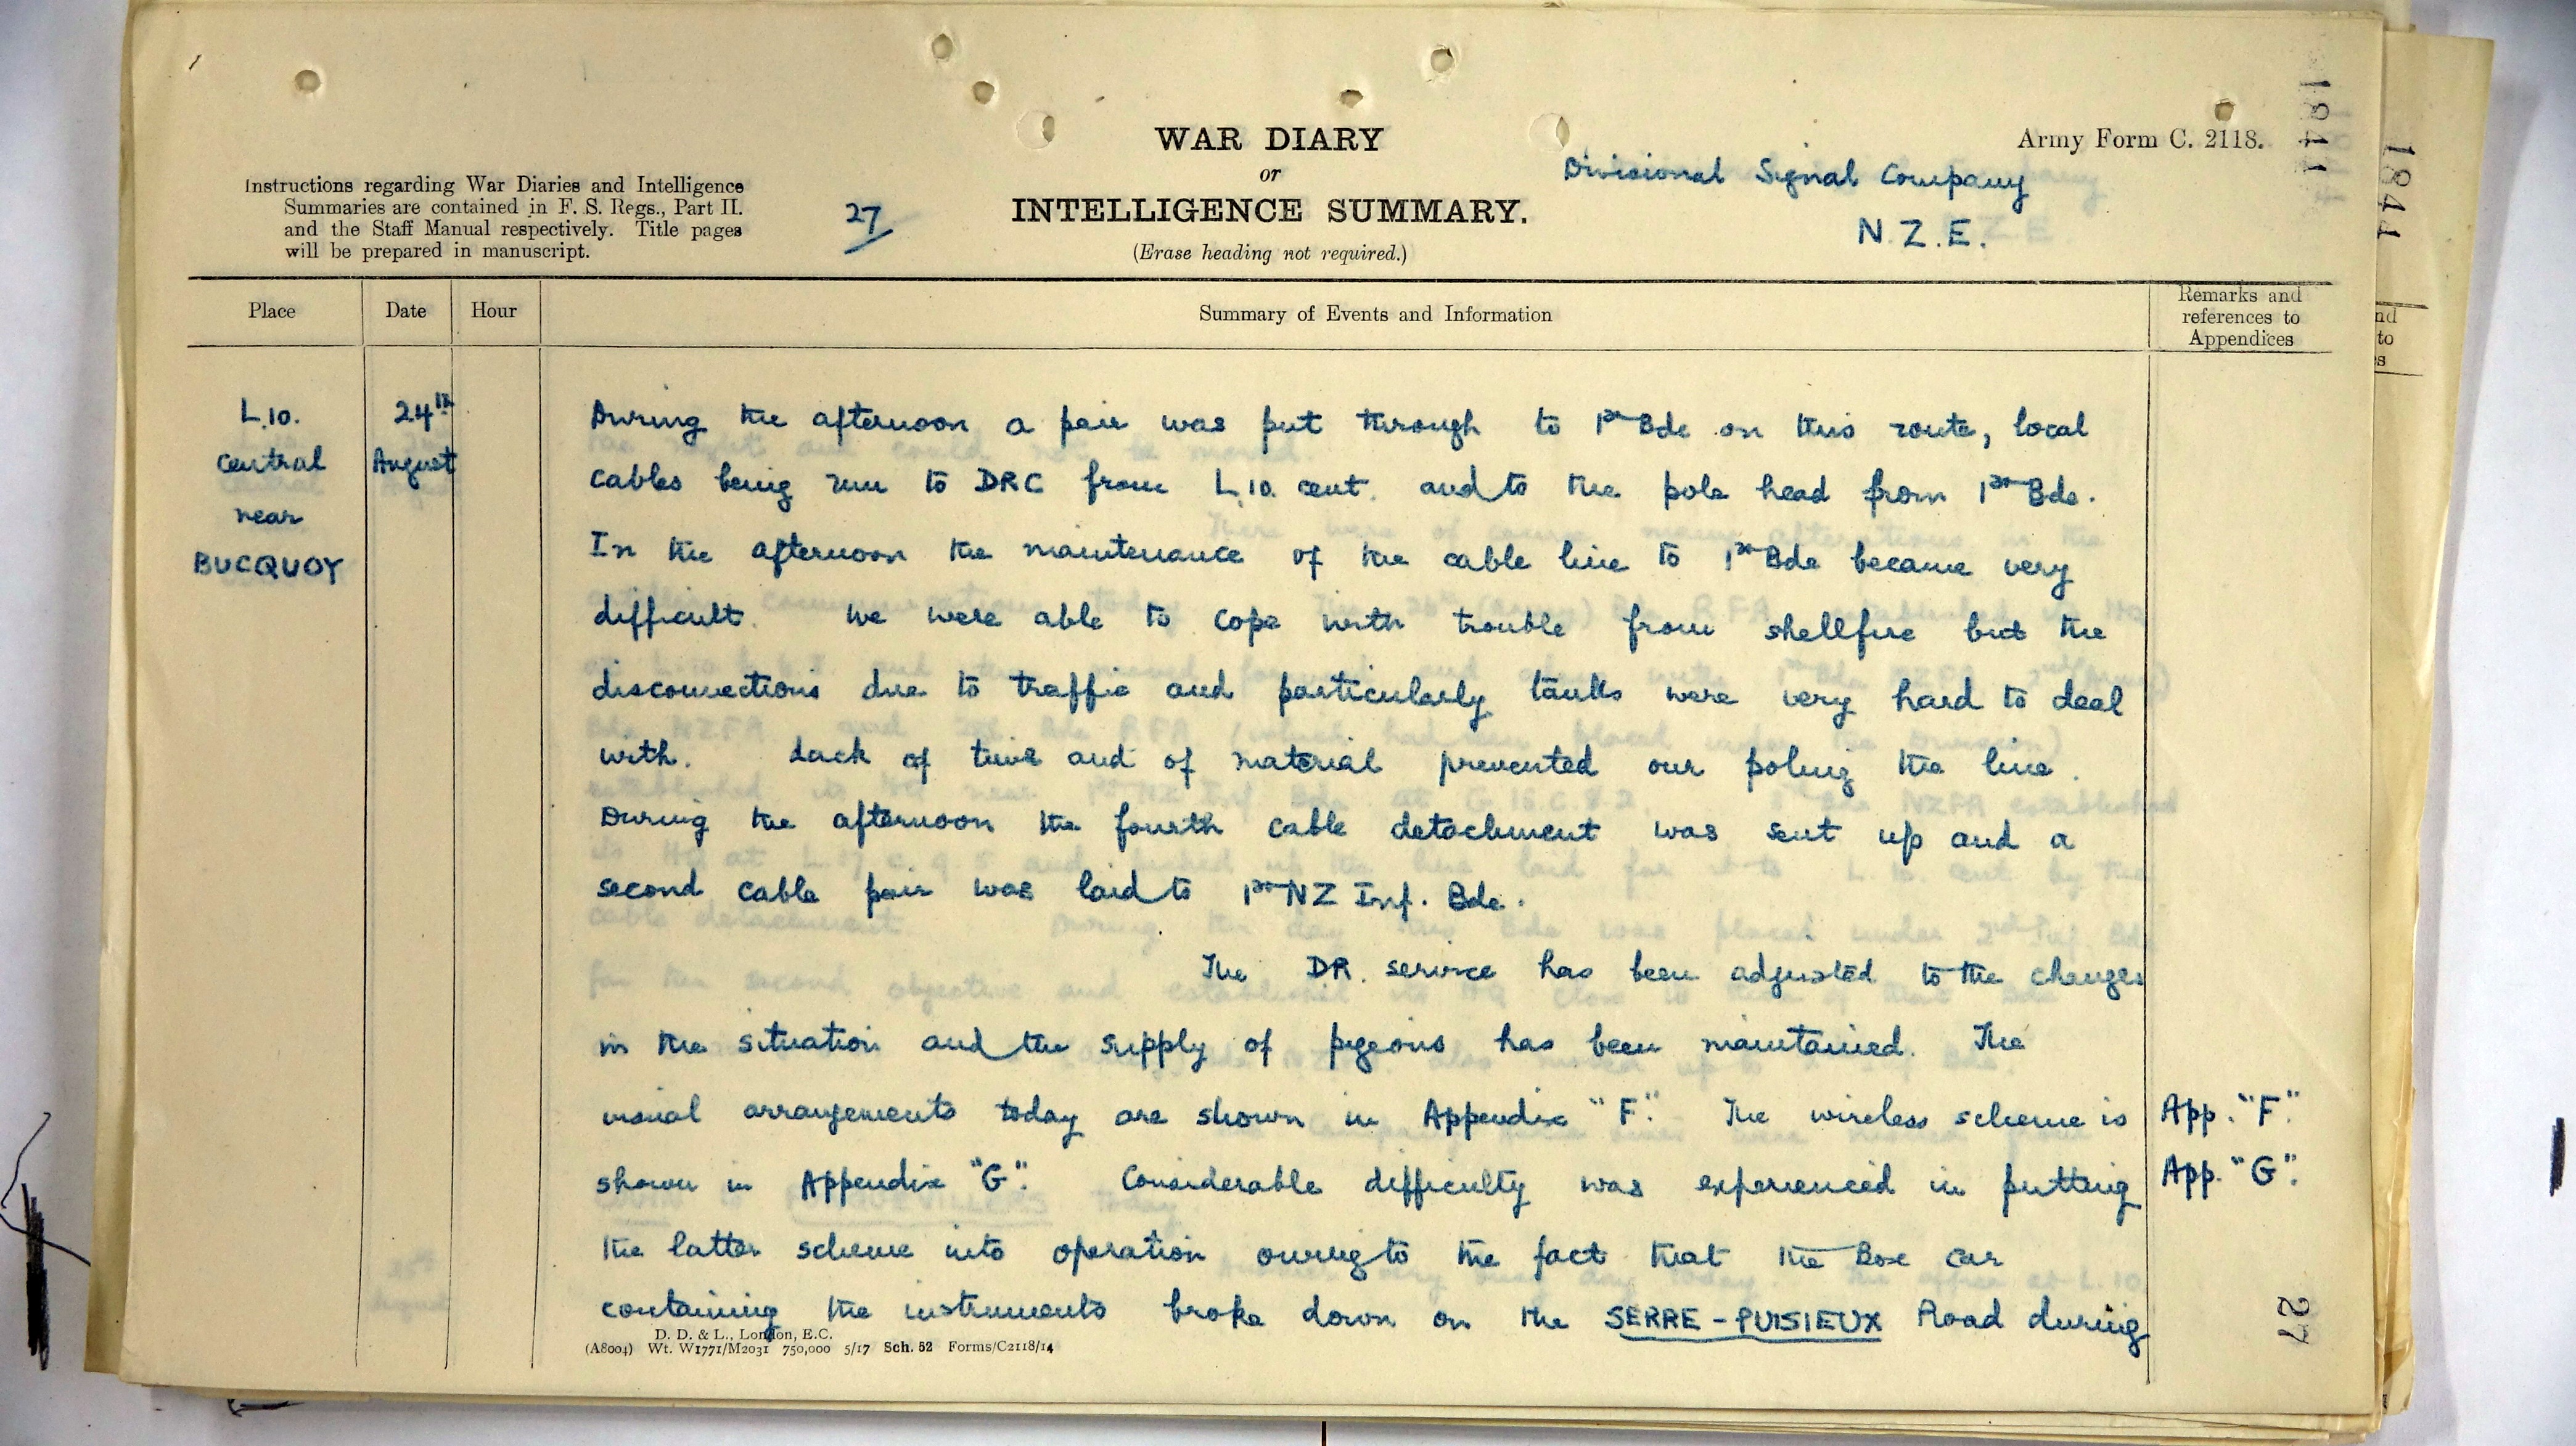 WAR DIARY
or
INTELLIGENCE SUMMARY.
(Erase heading not required.)
Army Form C. 2118.
Divisional Signal Company
N.Z.E.
Instructions regarding War Diaries and Intelligence
Summaries are contained in F. S. Regs., Part II.
and the Staff Manual respectively. Title pages
will be prepared in manuscript.
27
1841
1841
Place
Date
Hour
Summary of Events and Information
Remarks and
references to
Appendices
nd
to
s
L.10.
central
near
BUCQUOY
24th
August
During the afternoon a pair was put through to 1st Bde on this route, local
cables being run to DRC from L.10. cent. and to the pole head from 1st Bde.
In the afternoon the maintenance of the cable line to 1st Bde became very
difficult. We were able to cope with trouble from shellfire but the
disconnections due to traffic and particularly tanks were very hard to deal
with. Lack of time and of material prevented our poling the line.
During the afternoon the fourth cable detachment was sent up and a
second cable pair was laid to 1st NZ Inf. Bde.
The D.R. service has been adjusted to the changes
in the situation and the supply of pigeons has been maintained. The
visual arrangements today are shown in Appendix "F". The wireless scheme is
shown in Appendix "G". Considerable difficulty was experienced in putting
the latter scheme into operation owing to the fact that the Box car
containing the instruments broke down on the SERRE-PUISIEUX Road during
App. "F".
App. "G".
27
D. D. & L., London, E.C.
(A8004) Wt. W1771/M2031 750,000 5/17 Sch. 52 Forms/C2118/14